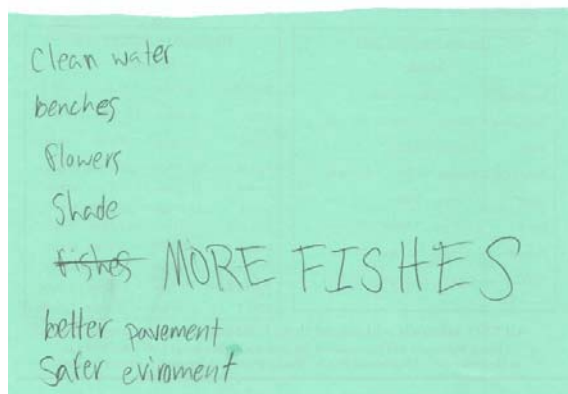 Clean water
benches
flowers
Shade
fishes MORE FISHES
better pavement
Safer eviroment